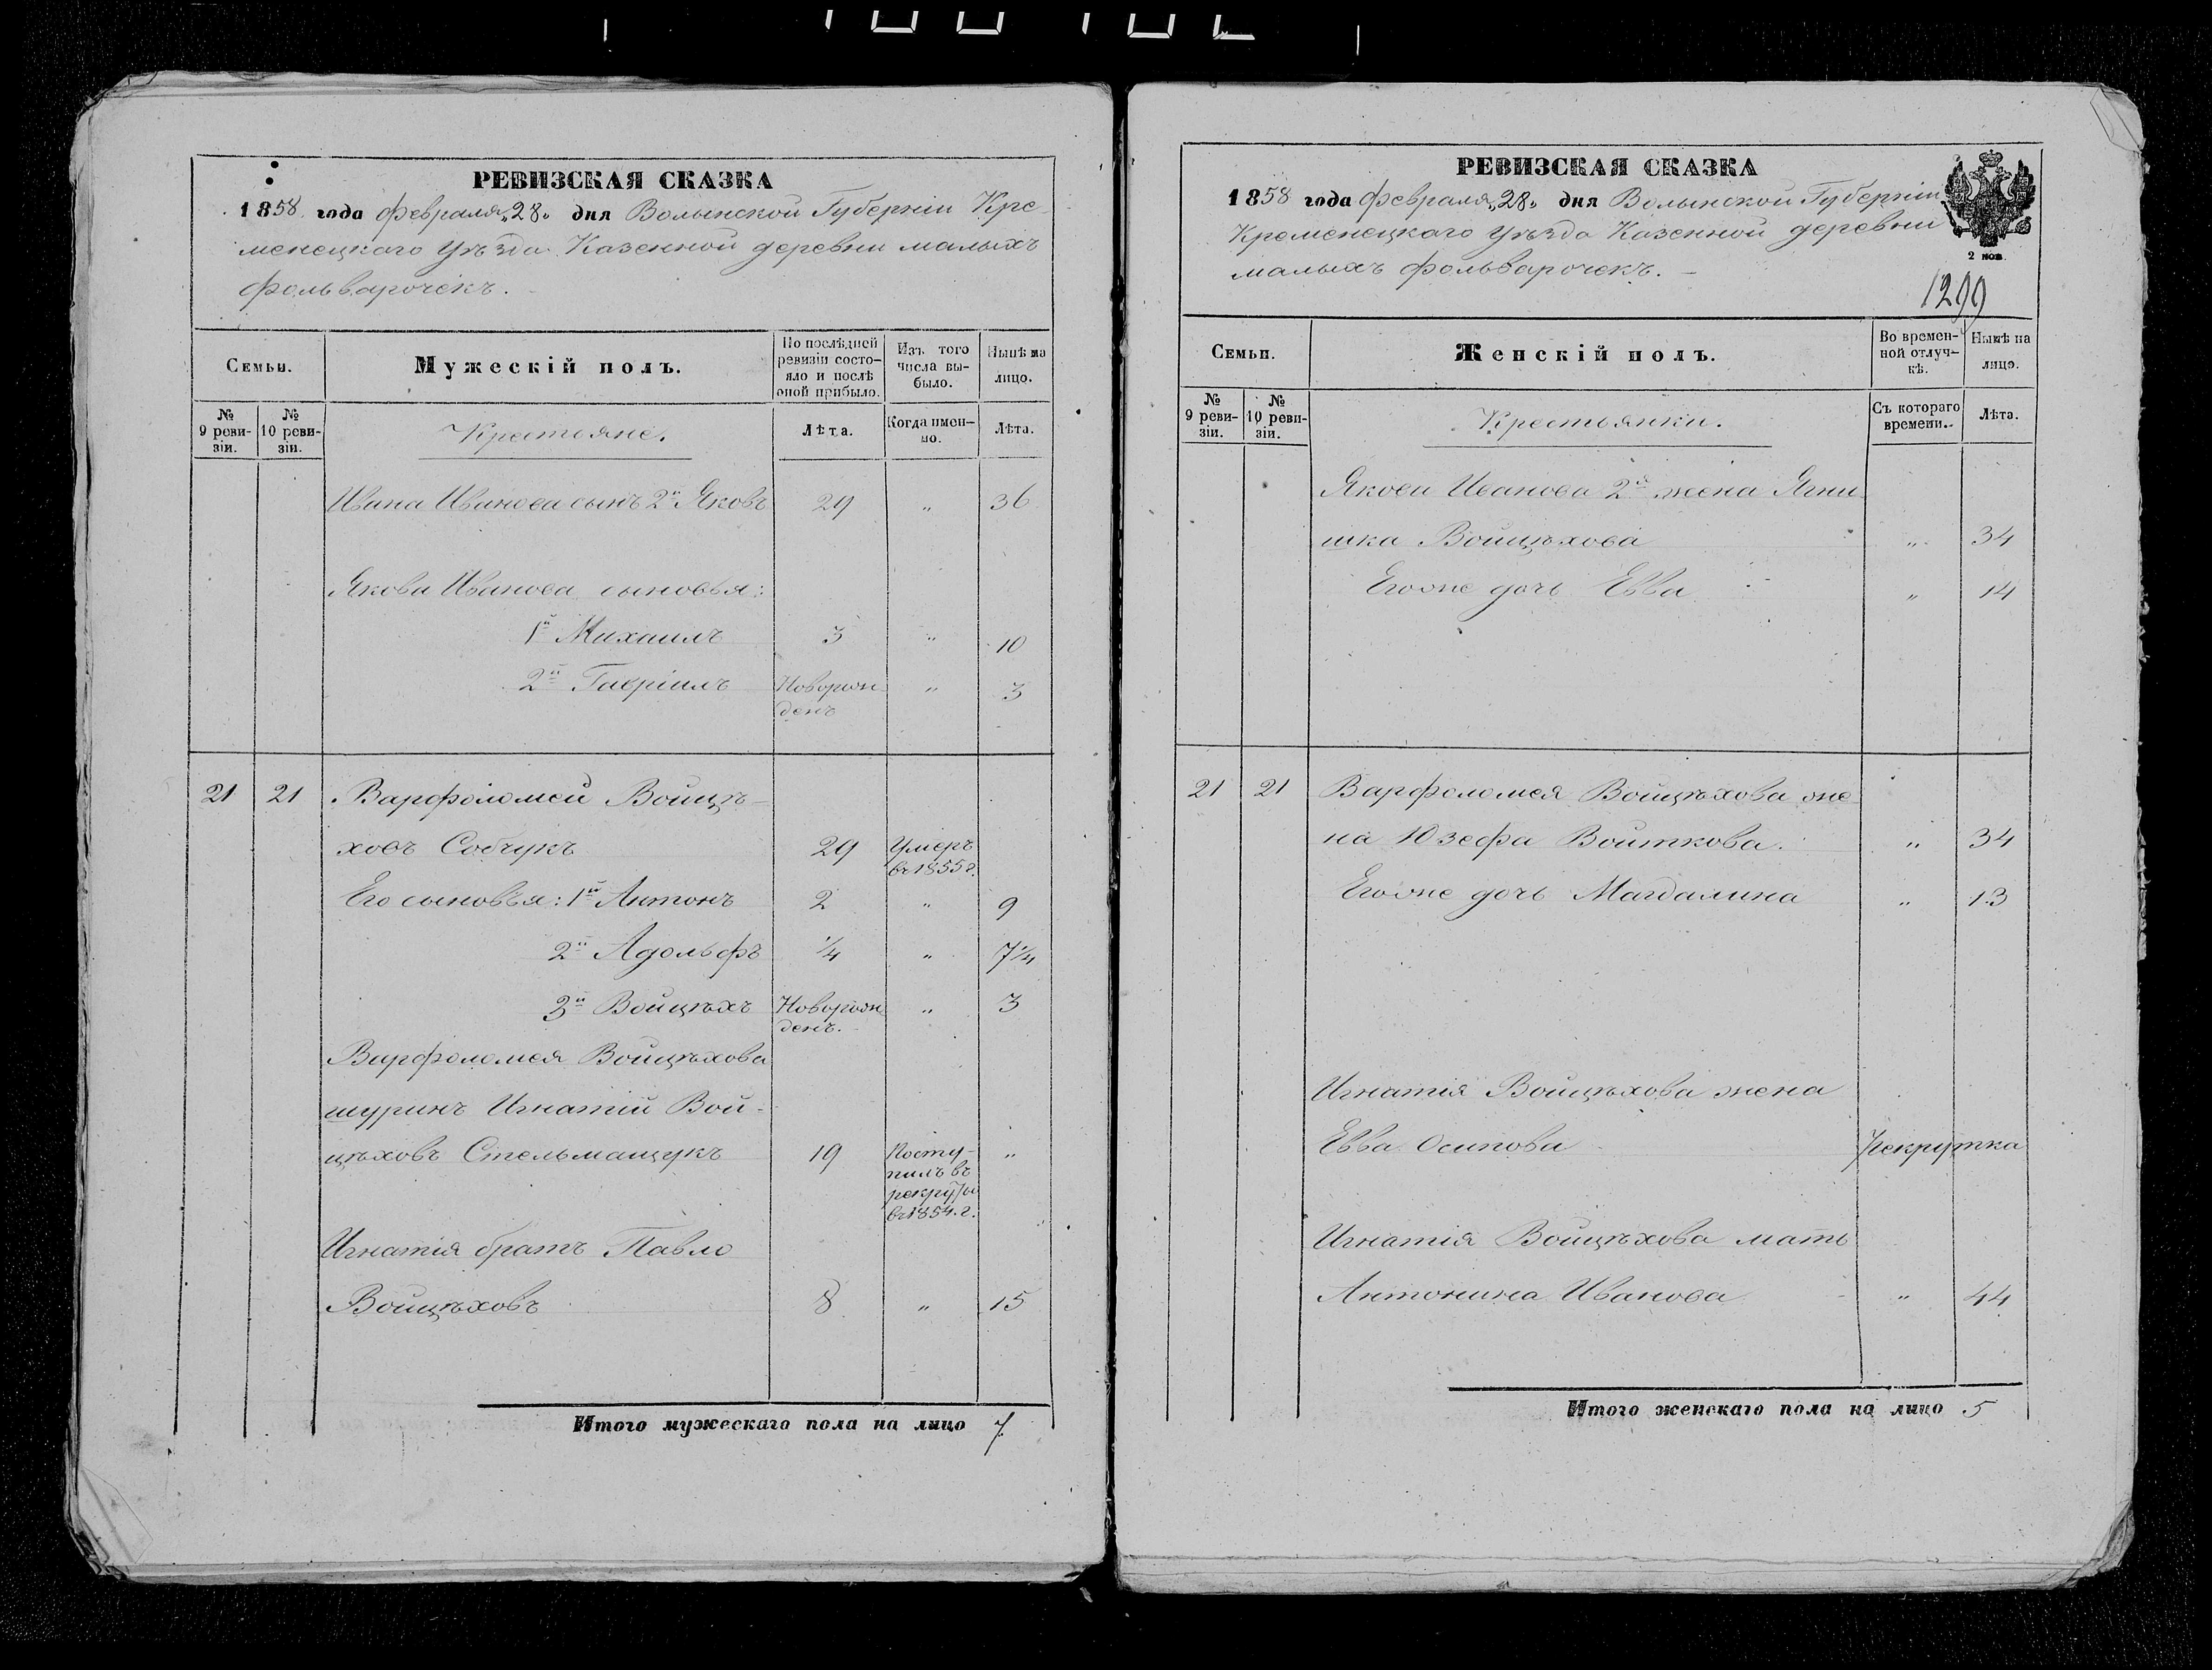 РЕВИЗСКАЯ СКАЗКА
1858 года Февраля „28„ дня Волынской Губерніи Кре-
менецкаго Уѣзда Казенной деревни малыхъ
фольварочекъ.
Семьи.
Мужескій полъ.
По послѣдней
ревизіи состо-
яло и послѣ
оной прибыло.
Изъ того
числа вы-
было.
Нынѣ на
лицо.
№
9 реви-
зіи.
№
10 реви-
зіи.
Крестьяне.
Лѣта.
Когда имен-
но.
Лѣта.
Ивана Иванова сынъ 2й Яковъ 29 „ 36
Якова Иванова сыновья:
1й Михаилъ 3 „ 10
2й Гавріилъ Новорож „ 3
денъ
21 21 Варфоломей Войцѣ-
ховъ Собчукъ 29 Умеръ
въ 1855 г.
Его сыновья: 1й Антонъ 2 „ 9
2й Адольфъ 1/4 „ 7 1/4
3й Войцѣхъ Новорож „ 3
денъ.
Варфоломея Войцѣхова
шуринъ Игнатій Вой-
цѣховъ Стельмащукъ 19 Посту- „
пилъ въ
рекруты
въ 1854. г.
Игнатія братъ Павло
Войцѣховъ 8 „ 15
Итого мужескаго пола на лицо 7
РЕВИЗСКАЯ СКАЗКА
1858 года Февраля „28„ дня Волынской Губерніи
Кременецкаго Уѣзда Казенной деревни
малыхъ фольварочекъ.
2 коп.
1299
Семьи.
Женскій полъ.
Во времен-
ной отлуч-
кѣ.
Нынѣ на
лицо.
№
9 реви-
зіи.
№
10 реви-
зіи.
Крестьянки.
Съ котораго
времени.
Лѣта.
Якова Иванова 2я жена Ягни
шка Войцѣхова „ 34
Егоже дочь Евва „ 14
21 21 Варфоломея Войцѣхова же
на Юзефа Войткова. „ 34
Егоже дочь Магдалина „ 13
Игнатія Войцѣхова жена
Евва Осипова рекрутка
Игнатія Войцѣхова мать
Антонина Иванова „ 44
Итого женскаго пола на лицо 5